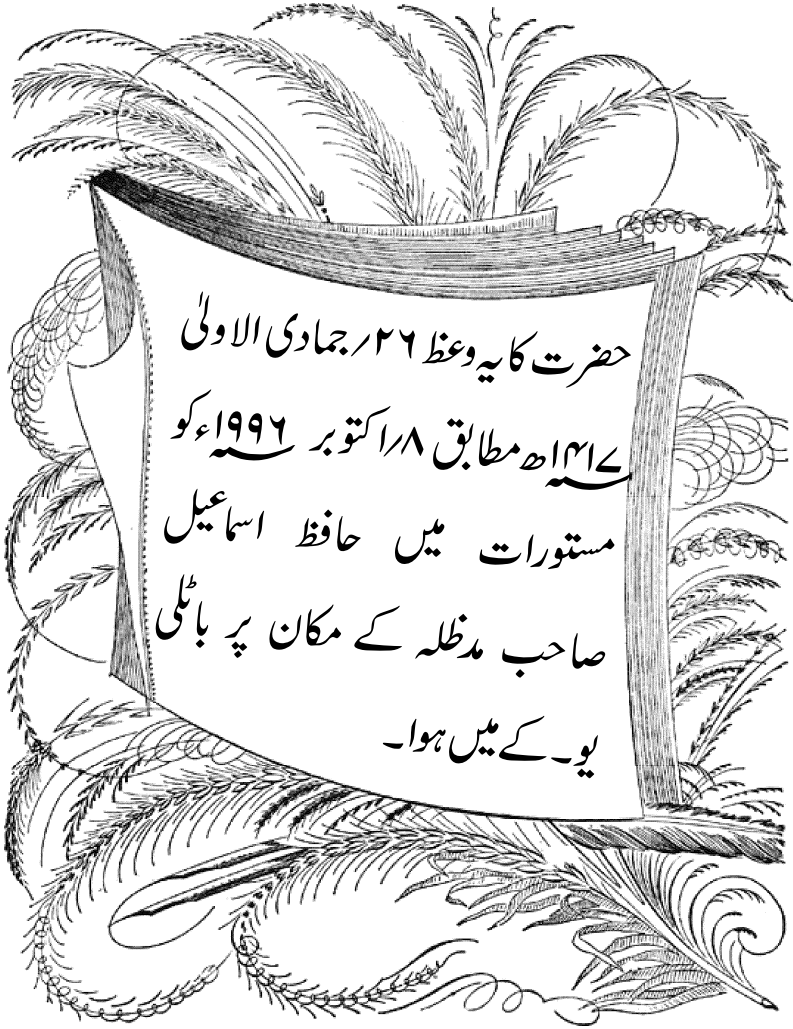 حضرت کا یہ وعظ ۲۶؍جمادی الاولیٰ
۱۴۱۷ھ مطابق ۸؍اکتوبر ۱۹۹۶ء کو
مستورات میں حافظ اسماعیل
صاحب مدظلہ کے مکان پر باٹلی
یو۔کے میں ہوا۔